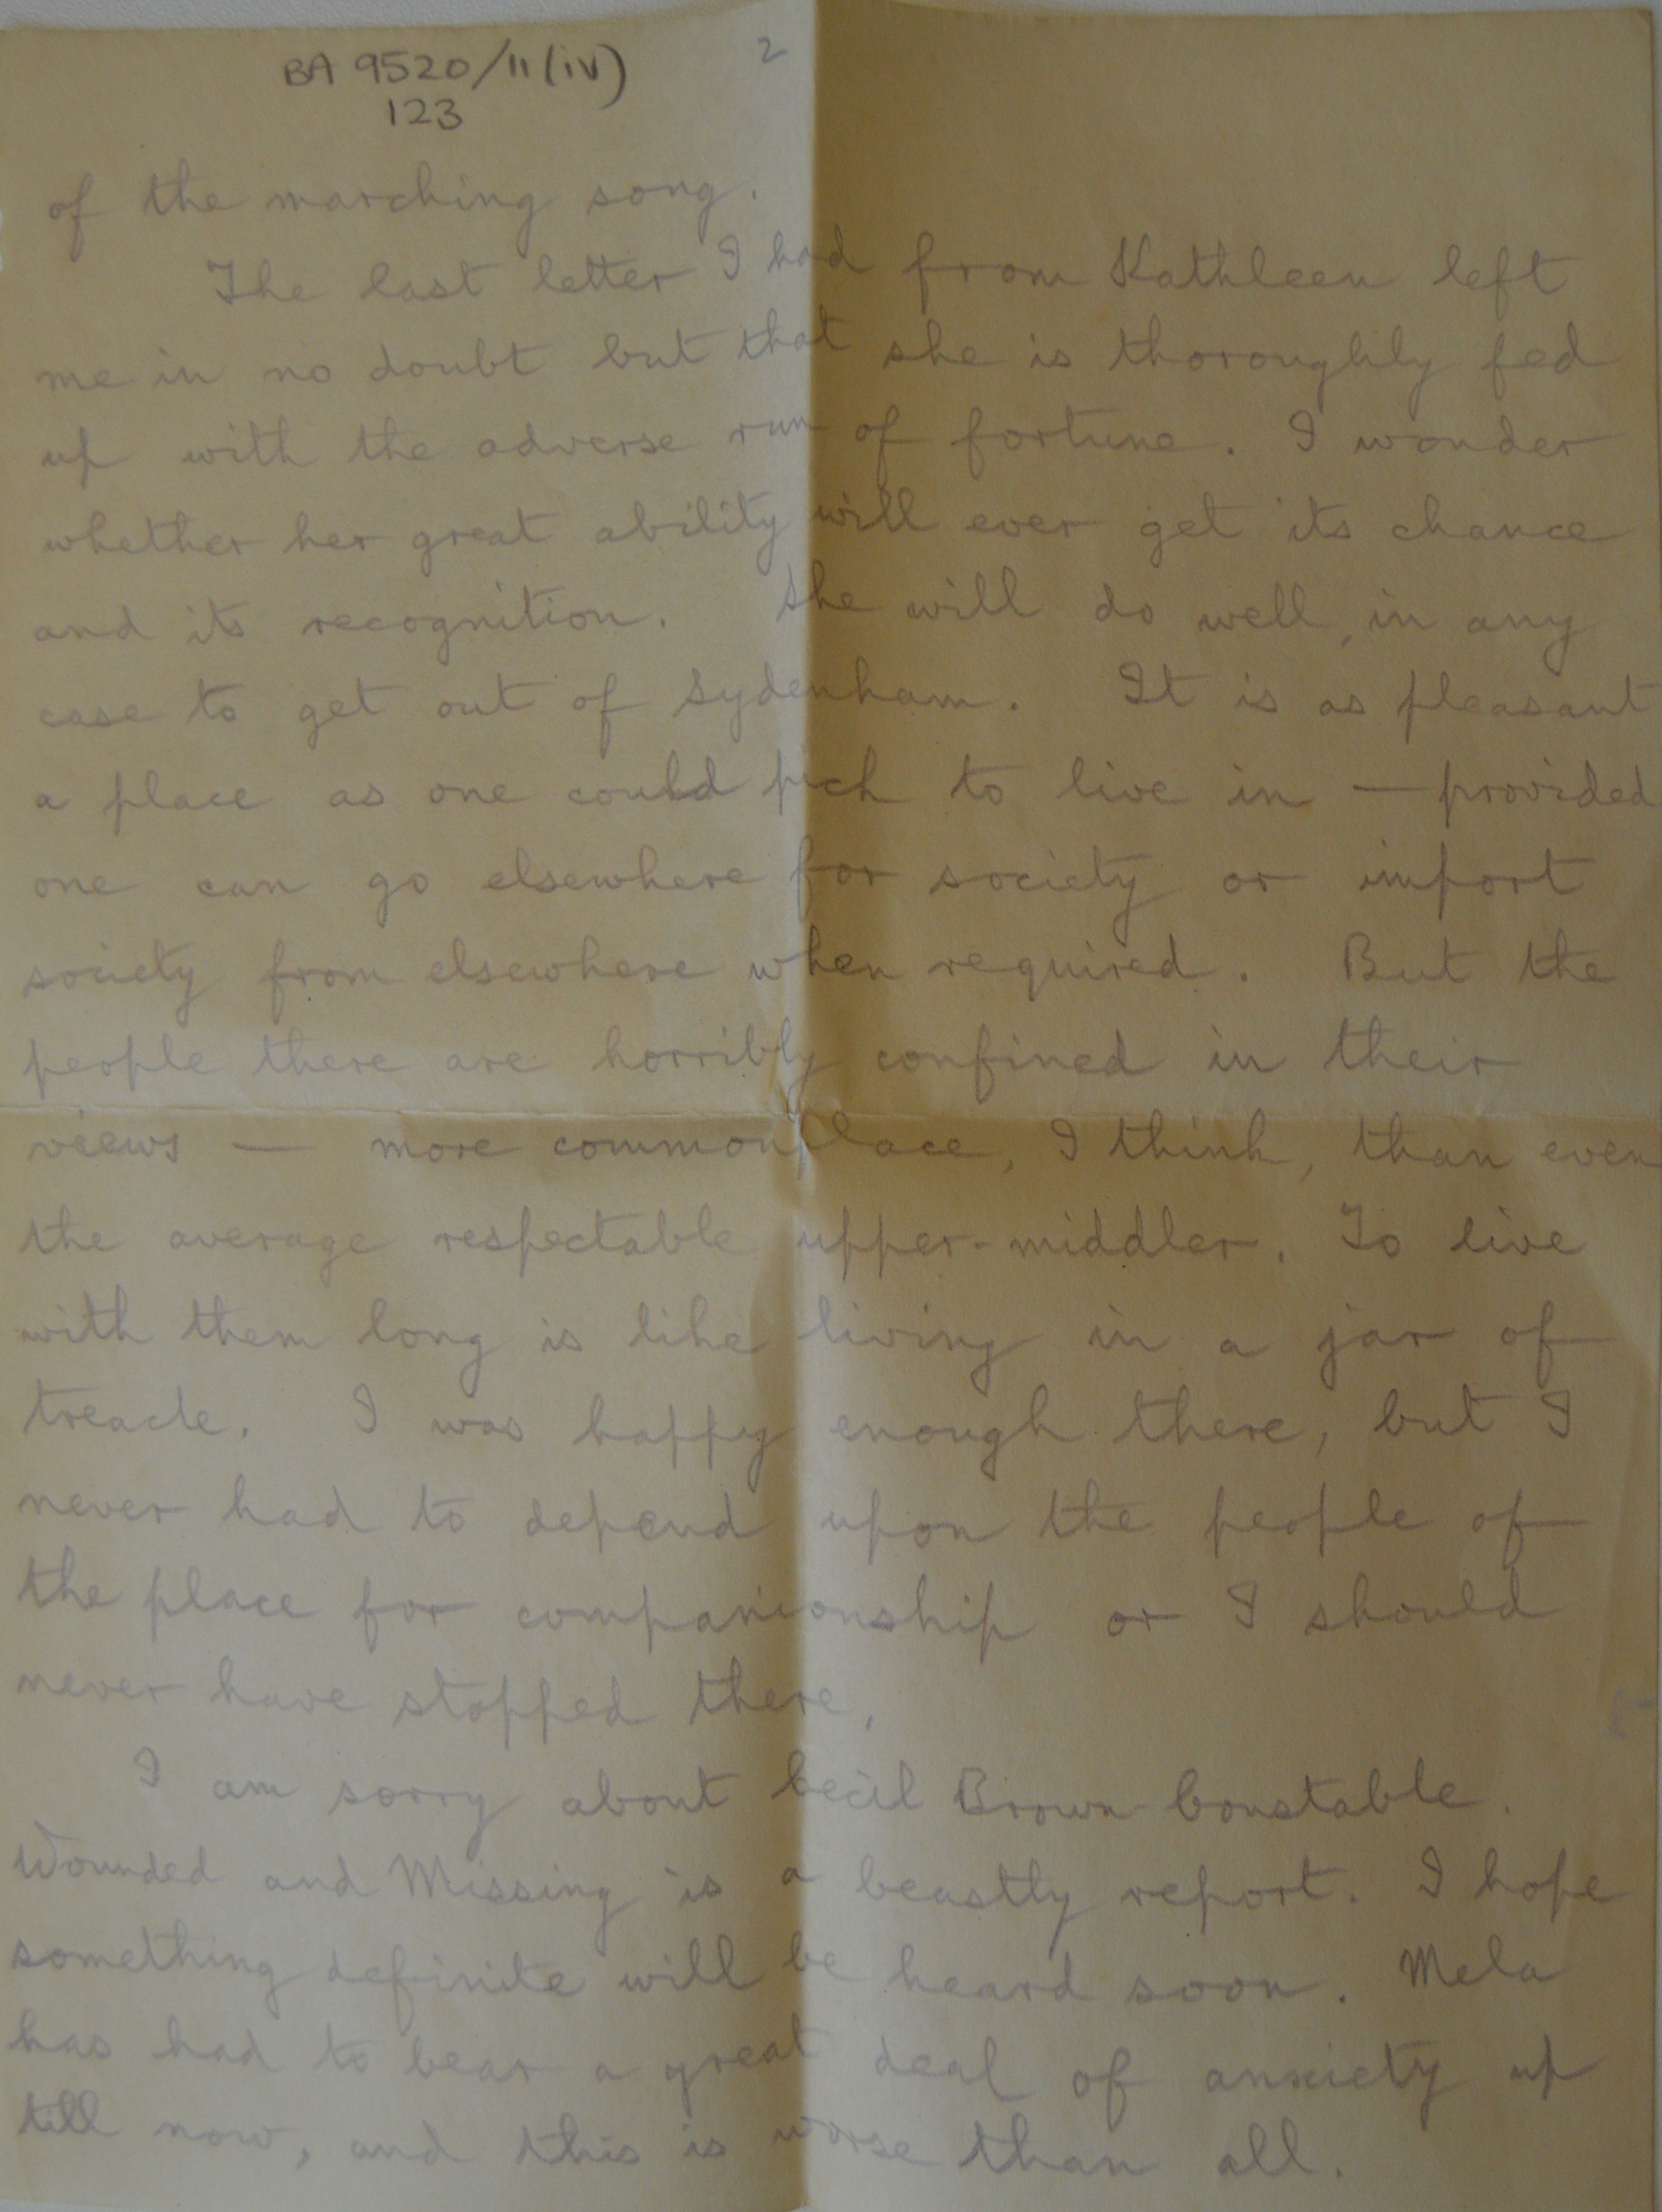 BA 9520/11(iv)
123
2
of the marching song.
The last letter I had from Kathleen left
me in no doubt but that she is thoroughly fed
up with the adverse run of fortune. I wonder
whether her great ability will ever get its chance
and its recognition. She will do well, in any
case to get out of Sydenham. It is as pleasant
a place as one could pick to live in — provided
one can go elsewhere for society or import
society from elsewhere when required. But the
people there are horribly confined in their
views — more commonplace, I think, than even
the average respectable upper-middler. To live
with them long is like living in a jar of
treacle. I was happy enough there, but I
never had to depend upon the people of
the place for companionship or I should
never have stopped there.
I am sorry about Cecil Brown Constable.
Wounded and Missing is a beastly report. I hope
something definite will be heard soon. Mela
has had to bear a great deal of anxiety up
till now, and this is worse than all.